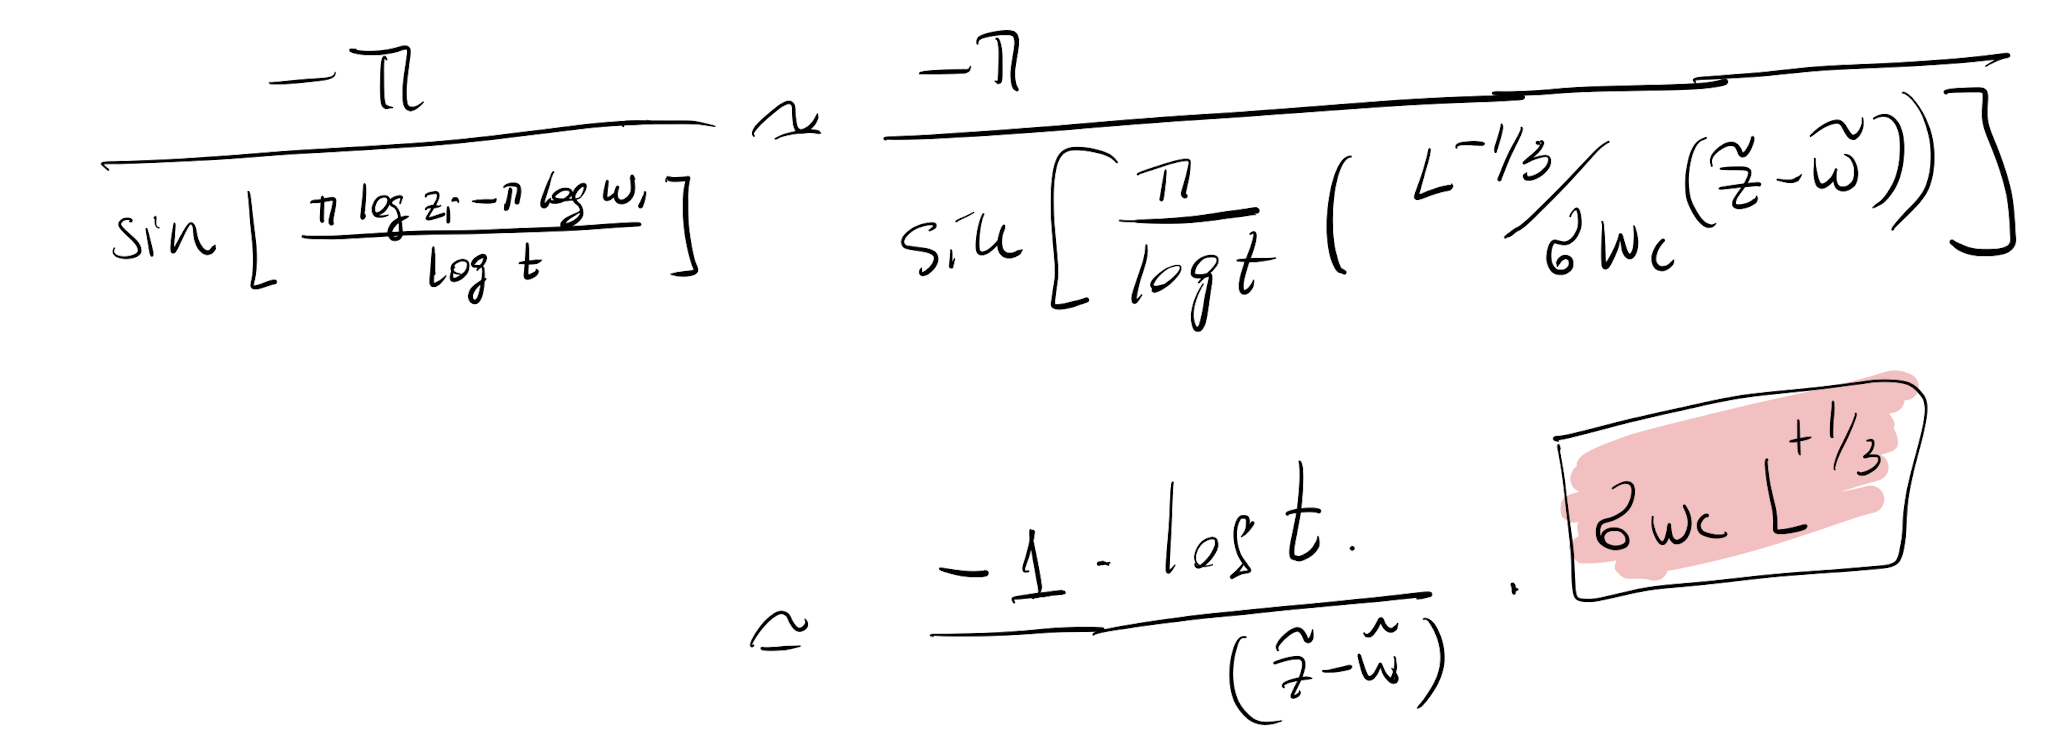 -π / sin[(π log z_i - π log w_i) / log t] ≃ -π / sin[π/log t (L^{-1/3}/σw_c (z̃-w̃))]
≃ -1 · log t. / (z̃-w̃) · σw_c L^{+1/3}